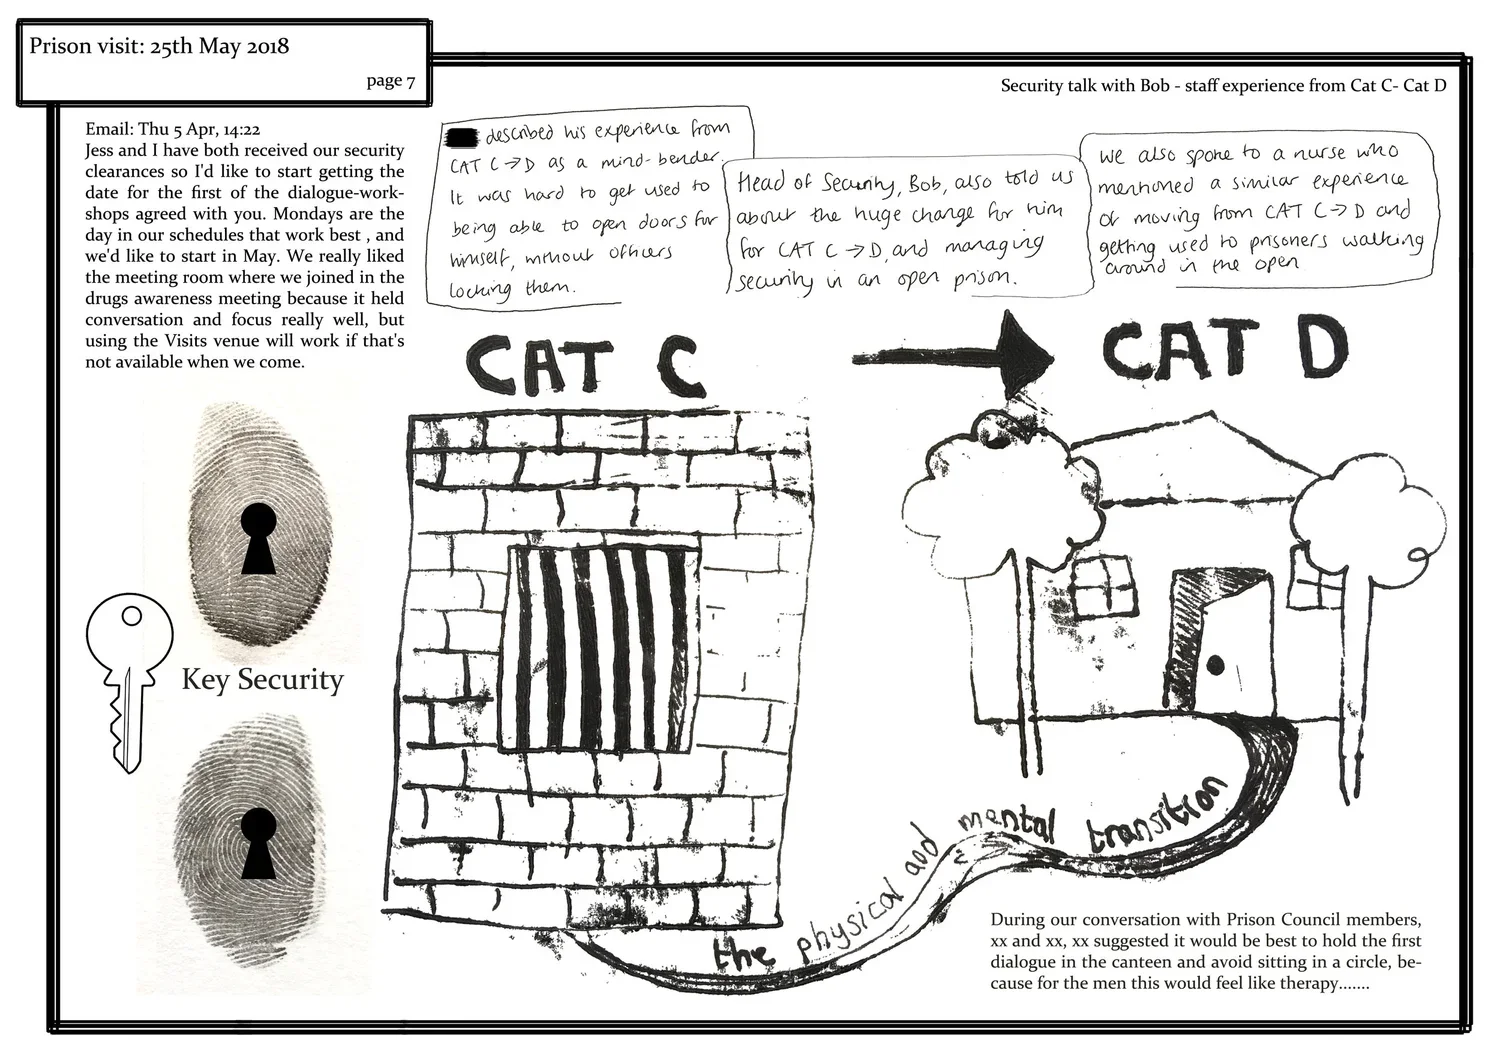 Prison visit: 25th May 2018
page 7
Security talk with Bob - staff experience from Cat C- Cat D
Email: Thu 5 Apr, 14:22
Jess and I have both received our security
clearances so I'd like to start getting the
date for the first of the dialogue-work-
shops agreed with you. Mondays are the
day in our schedules that work best , and
we'd like to start in May. We really liked
the meeting room where we joined in the
drugs awareness meeting because it held
conversation and focus really well, but
using the Visits venue will work if that's
not available when we come.
described his experience from
CAT C→D as a mind-bender.
It was hard to get used to
being able to open doors for
himself, without officers
locking them.
Head of Security, Bob, also told us
about the huge change for him
for CAT C→D, and managing
security in an open prison.
We also spoke to a nurse who
mentioned a similar experience
of moving from CAT C→D and
getting used to prisoners walking
around in the open
CAT C
CAT D
Key Security
the physical and mental transition
During our conversation with Prison Council members,
xx and xx, xx suggested it would be best to hold the first
dialogue in the canteen and avoid sitting in a circle, be-
cause for the men this would feel like therapy.......